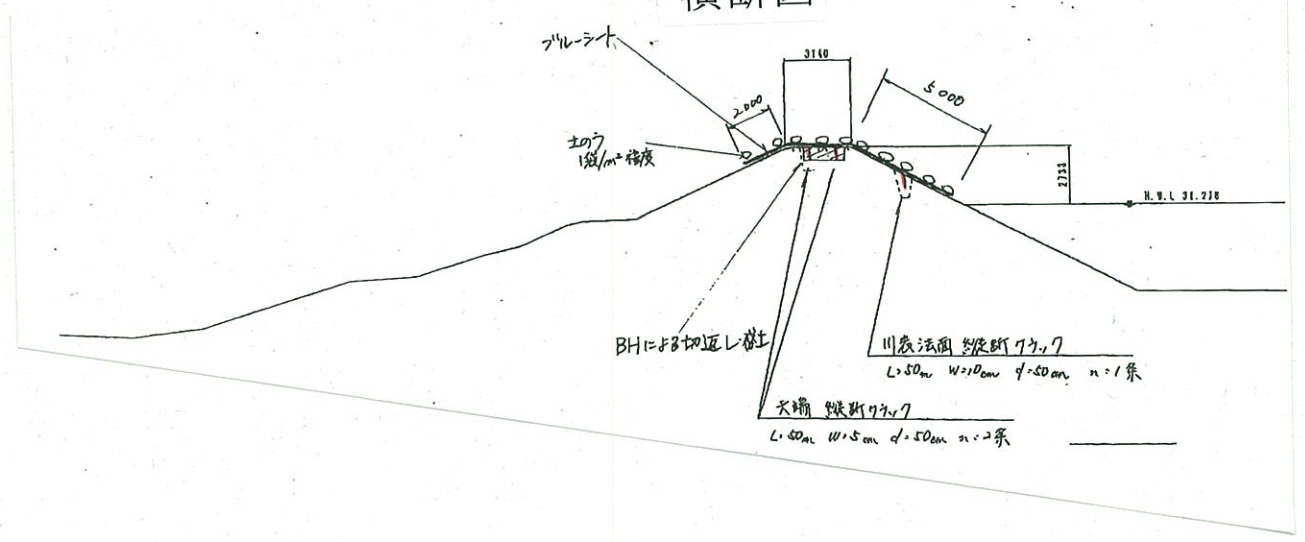 横断図
ブルーシート
3140
5000
2000
土のう
1袋/m² 程度
2733
H.W.L 31.230
BHによる切返し盛土
川表法面 縦断クラック
L=50m W=10cm d=50cm n=1条
天端 縦断クラック
L=50m W=5cm d=50cm n=2条